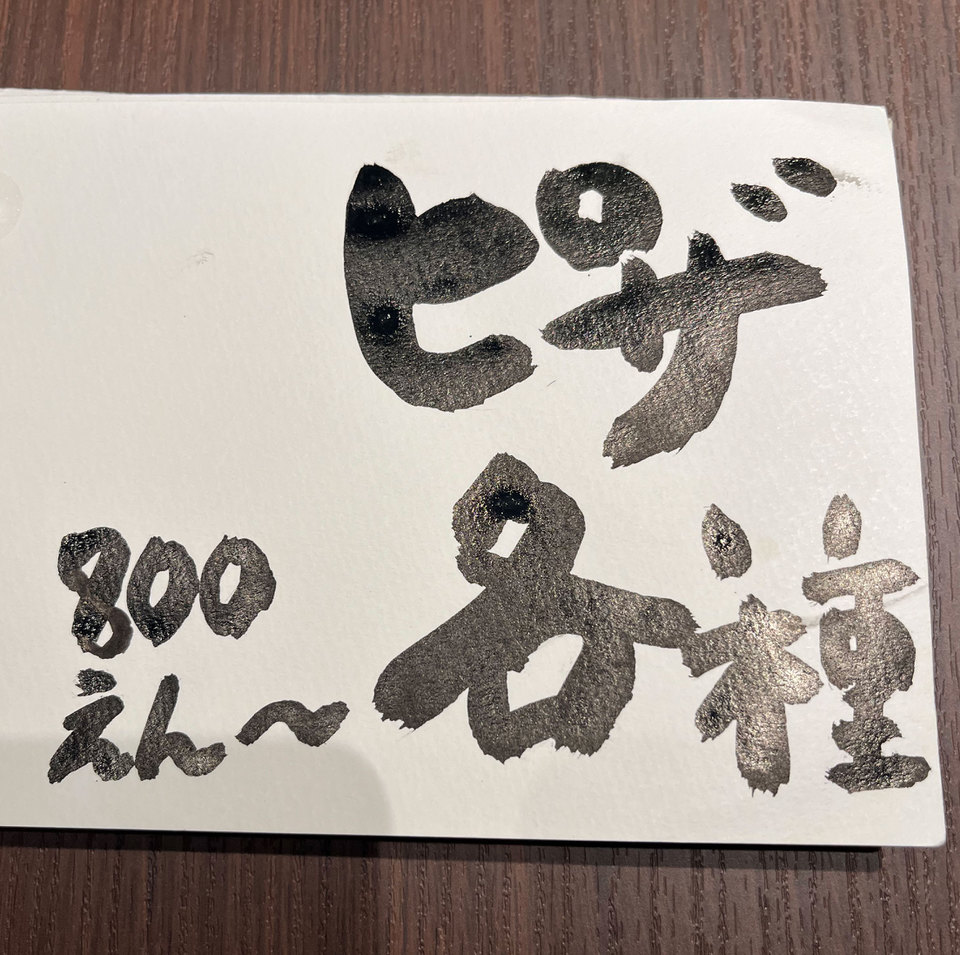 ピザ
各種
800
えん〜